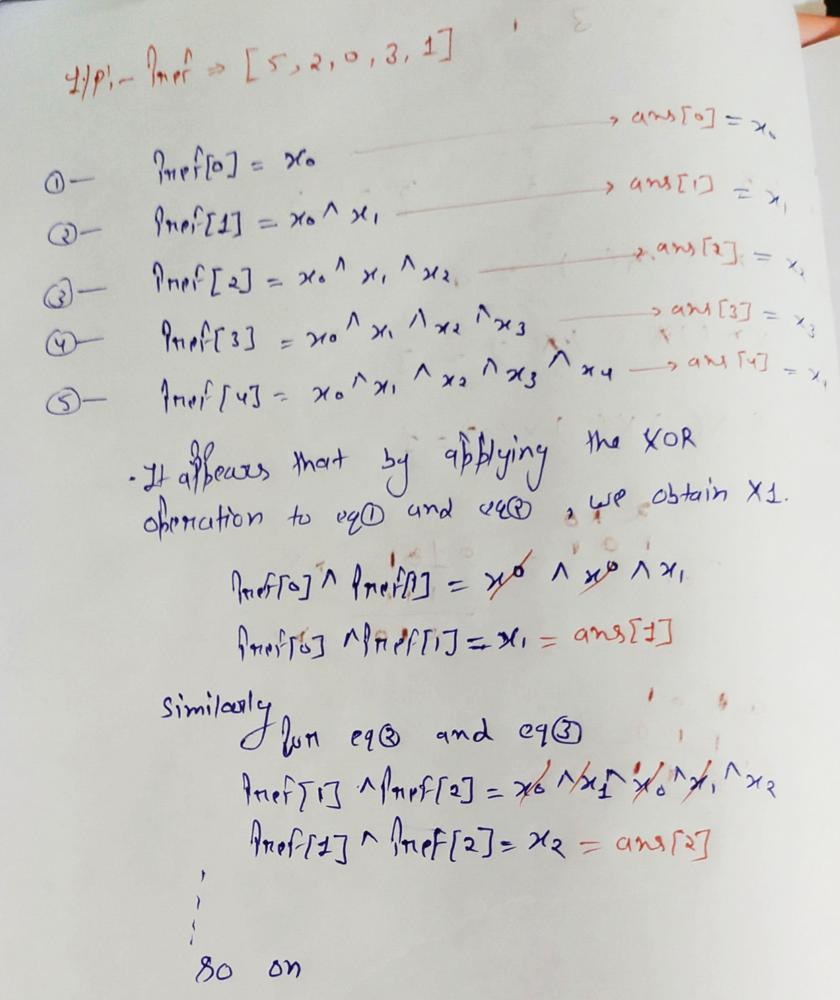 I/P:- Pref ⇒ [5, 2, 0, 3, 1]
①— Pref[0] = x₀ → ans[0] = x₀
②— Pref[1] = x₀ ^ x₁ → ans[1] = x₁
③— Pref[2] = x₀ ^ x₁ ^ x₂ → ans[2] = x₂
④— Pref[3] = x₀ ^ x₁ ^ x₂ ^ x₃ → ans[3] = x₃
⑤— Pref[4] = x₀ ^ x₁ ^ x₂ ^ x₃ ^ x₄ → ans[4] =
· It appears that by applying the XOR
operation to eq① and eq②, we obtain X1.
Pref[0] ^ Pref[1] = x0 ^ x0 ^ x₁
Pref[0] ^ Pref[1] = x₁ = ans[1]
Similarly
for eq② and eq③
Pref[1] ^ Pref[2] = x₀ ^ x₁ ^ x₀ ^ x₁ ^ x₂
Pref[1] ^ Pref[2] = x₂ = ans[2]
so on